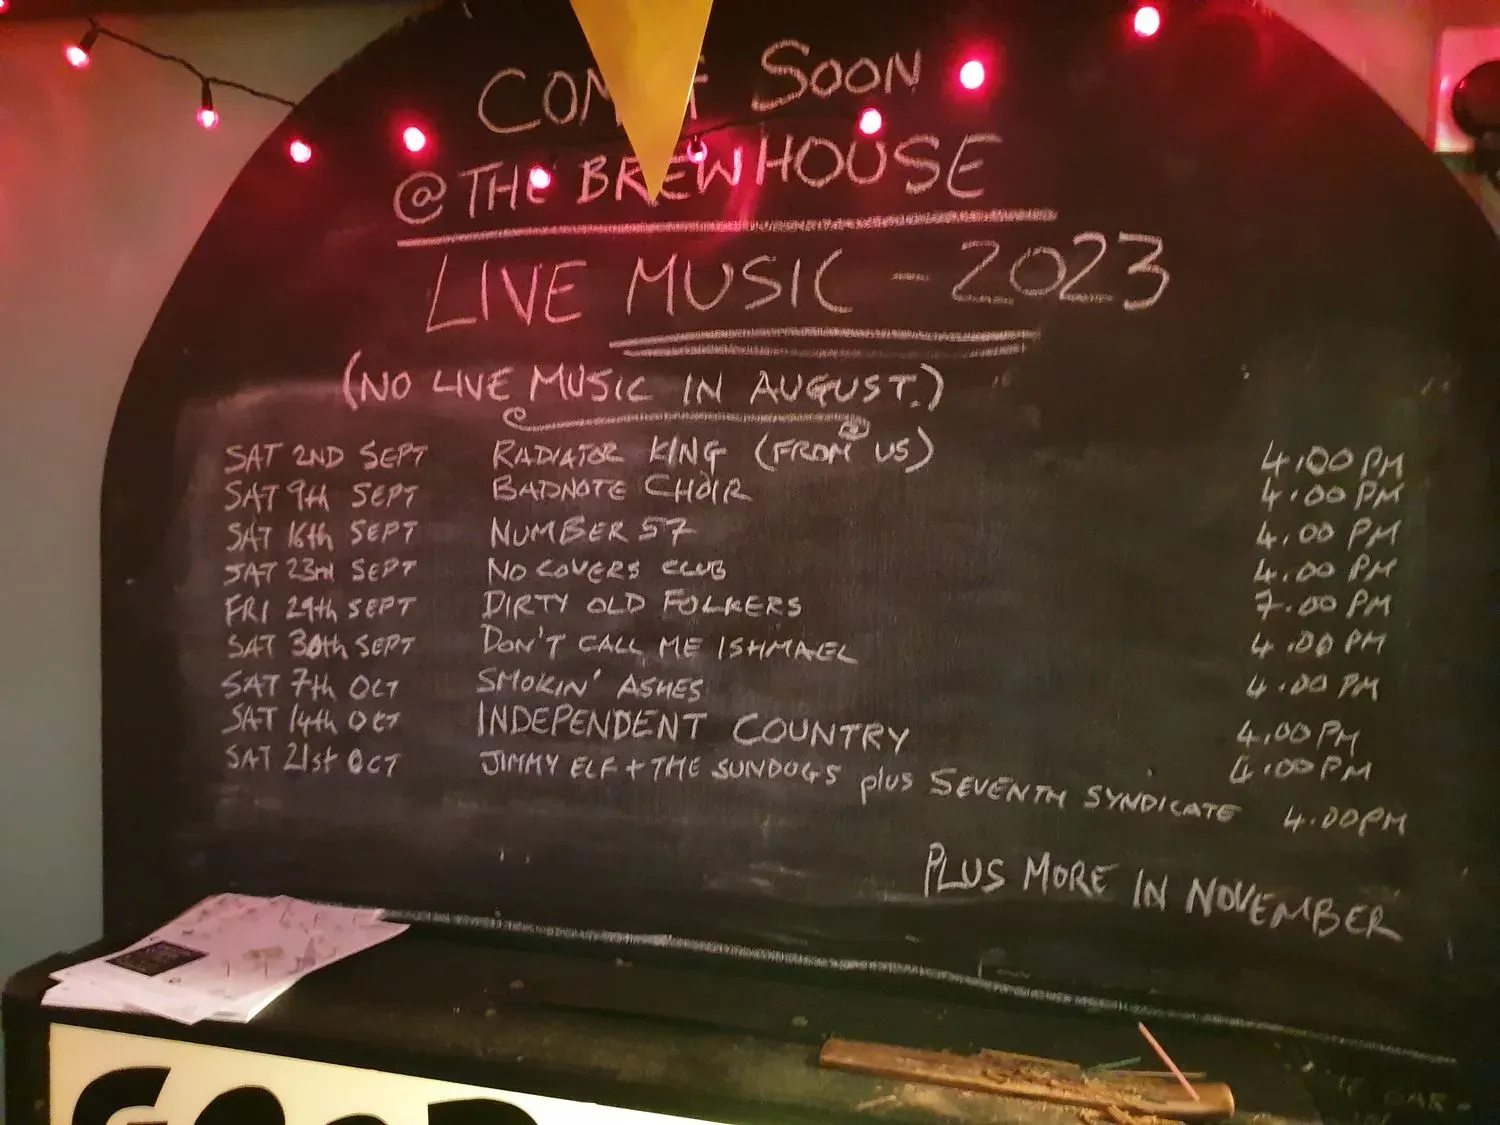 SOON
@ THE BREWHOUSE
LIVE MUSIC - 2023
(NO LIVE MUSIC IN AUGUST.)
SAT 2ND SEPT RADIATOR KING (FROM US) 4.00 PM
SAT 9th SEPT BADNOTE CHOIR 4.00 PM
SAT 16th SEPT NUMBER 57 4.00 PM
SAT 23rd SEPT NO COVERS CLUB 4.00 PM
FRI 29th SEPT DIRTY OLD FOLKERS 7.00 PM
SAT 30th SEPT DON'T CALL ME ISHMAEL 4.00 PM
SAT 7th OCT SMOKIN' ASHES 4.00 PM
SAT 14th OCT INDEPENDENT COUNTRY 4.00 PM
SAT 21st OCT JIMMY ELF + THE SUNDOGS plus SEVENTH SYNDICATE 4.00 PM
4.00PM
PLUS MORE IN NOVEMBER